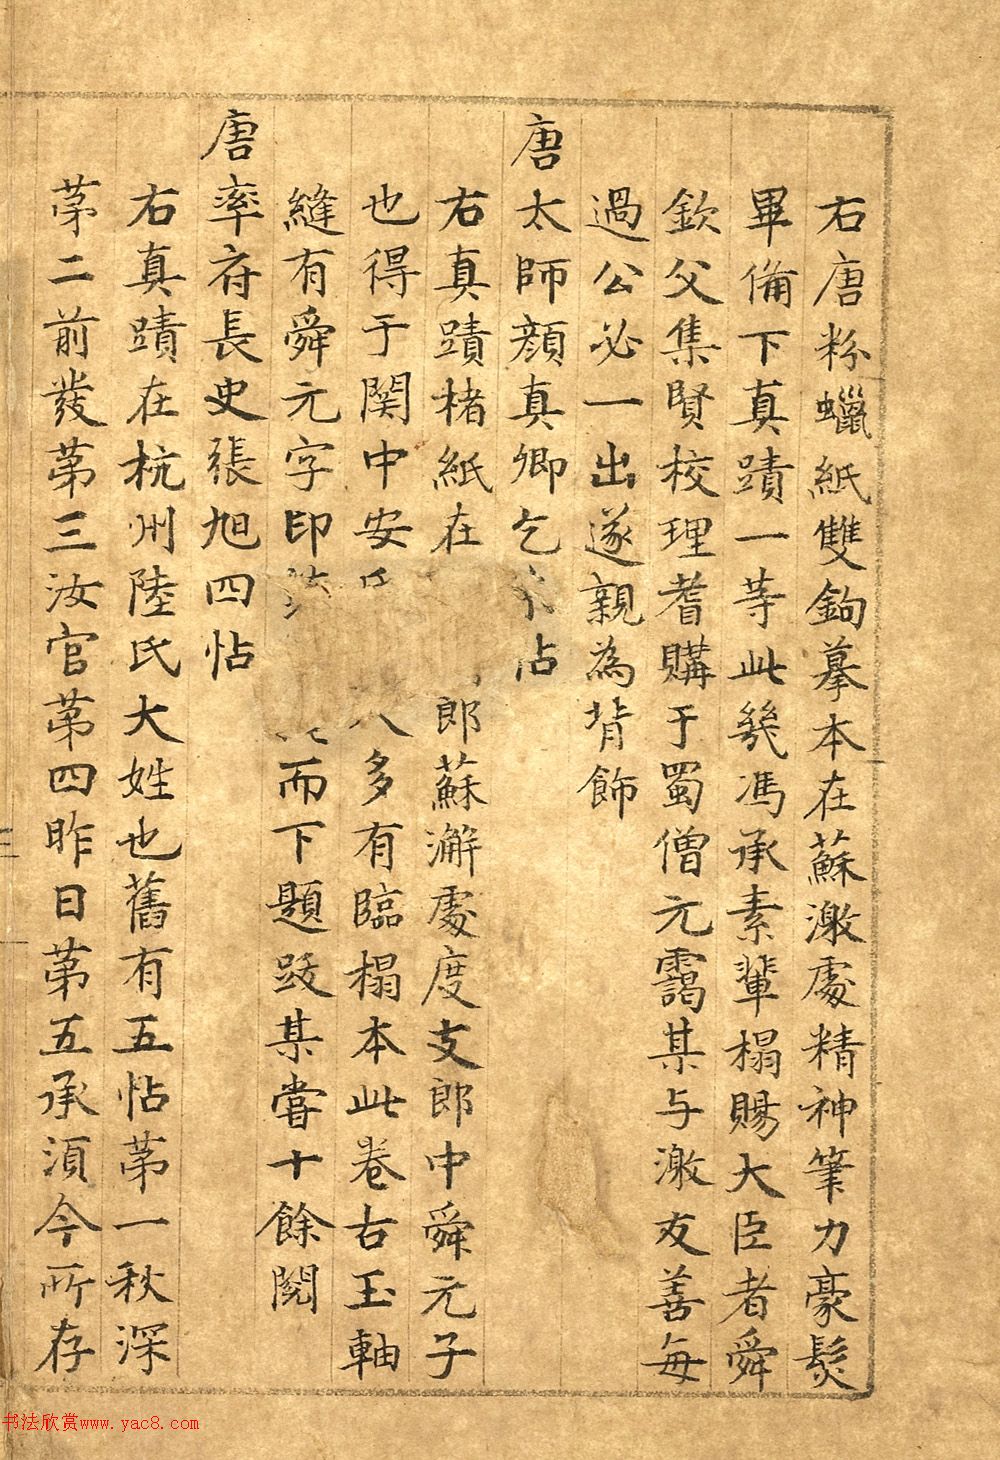 右唐粉蠟紙雙鉤摹本在蘇激處精神筆力豪髮
畢備下真蹟一等此幾馮承素輩榻賜大臣者舜
欽父集賢校理耆購于蜀僧元靄某与激友善每
過公必一出遂親為背飾
唐太師顏真卿乞帖
右真蹟楮紙在郎蘇澥處度支郎中舜元子
也得于関中安氏多有臨榻本此卷古玉軸
縫有舜元字印而下題跋某嘗十餘閱
唐率府長史張旭四帖
右真蹟在杭州陸氏大姓也舊有五帖苐一秋深
苐二前發苐三汝官苐四昨日苐五承須今所存
书法欣赏www.yac8.com